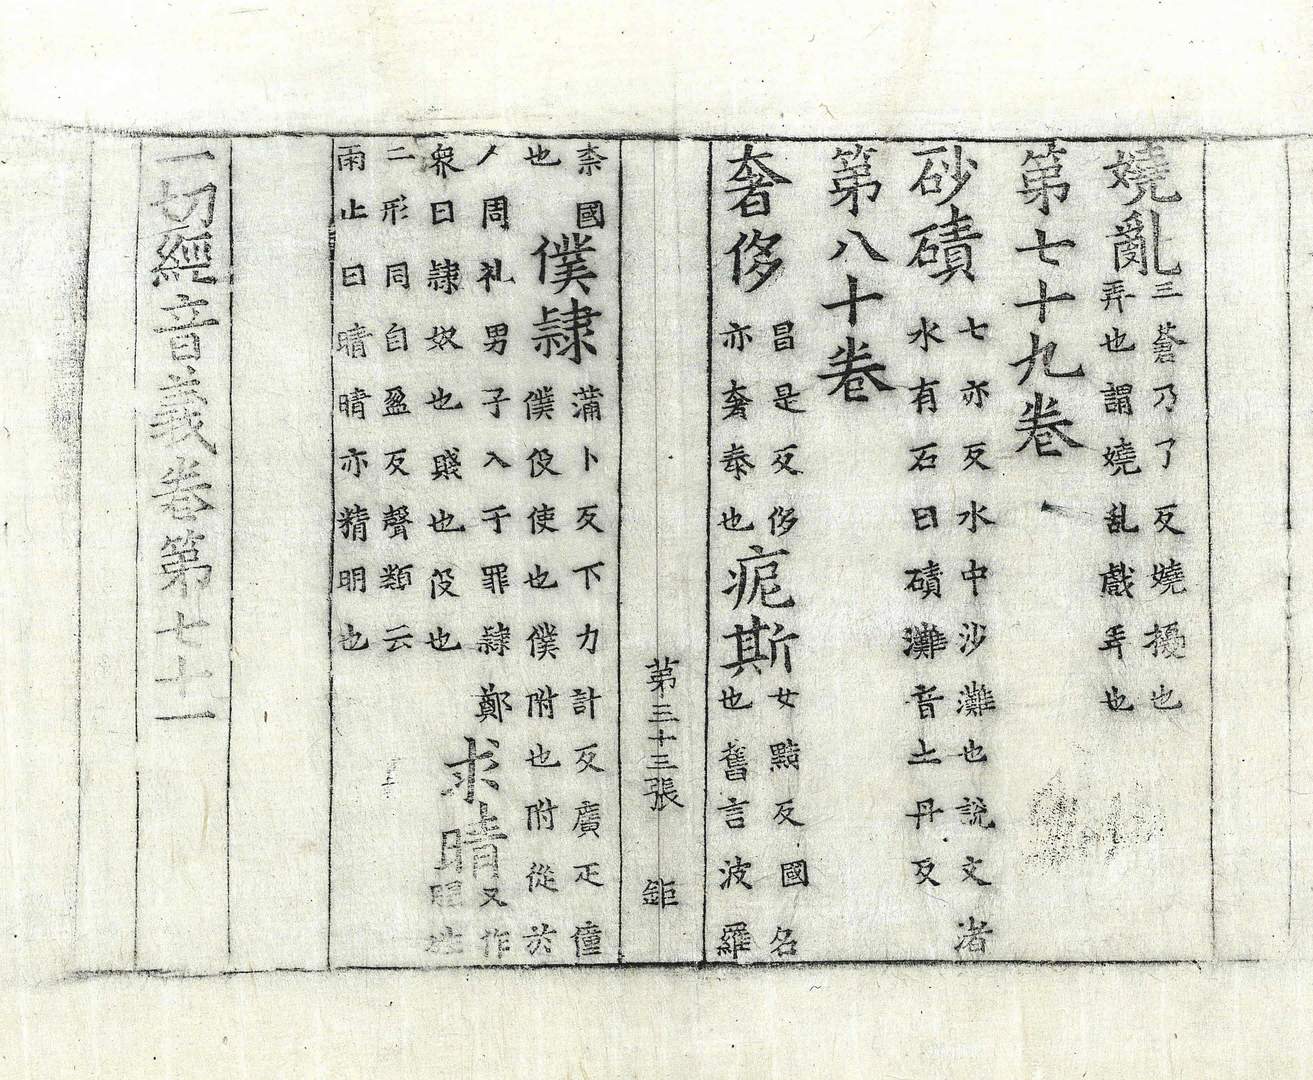 嬈亂三蒼乃了反嬈擾也
弄也謂嬈乱戲弄也
第七十九卷
砂磧七亦反水中沙灘也說文渚
水有石曰磧灘音土丹反
第八十卷
奢侈昌是反侈
亦奢泰也
痆斯女黠反國名
也舊言波羅
第三十三張 鉅
柰國
也
僕隷蒲卜反下力計反廣疋僮
僕伇使也僕附也附從於
人周礼男子入于罪隷鄭
衆曰隷奴也賤也伇也
求晴又作
二形同自盈反聲類云
雨止曰晴晴亦精明也
一切經音義卷第七十一